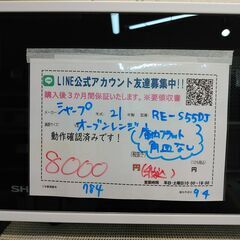 LINE公式アカウント友達募集中!!
購入後3か月間保証いたします。※要領収書
シャープ 21 RE-SS5DJ
オーブンレンジ 庫内フラット
角皿なし
動作確認済みです!
8000 円(税込) 円
784
94
SH